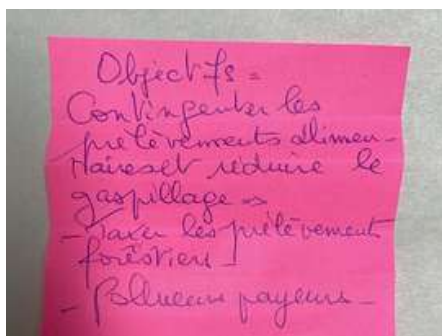 Objectifs =
Contingenter les
prélèvements alimen-
taires et réduire le
gaspillage =>
- Taxer les prélèvement
forêstiers -
- Pollueurs payeurs -